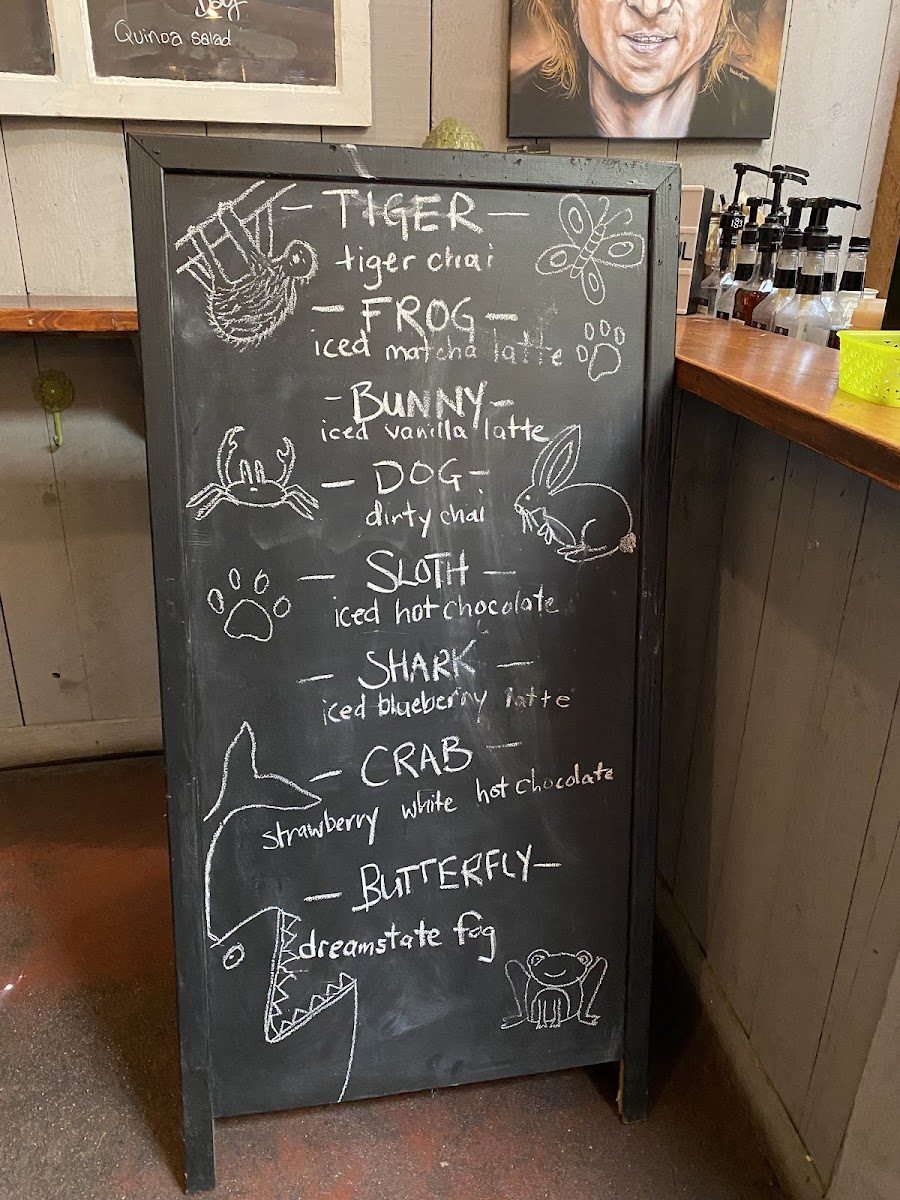 Day
Quinoa salad
- TIGER -
tiger chai
- FROG -
iced matcha latte
- BUNNY -
iced vanilla latte
- DOG -
dirty chai
- SLOTH -
iced hot chocolate
- SHARK -
iced blueberry latte
- CRAB -
strawberry white hot chocolate
- BUTTERFLY -
dreamstate fog